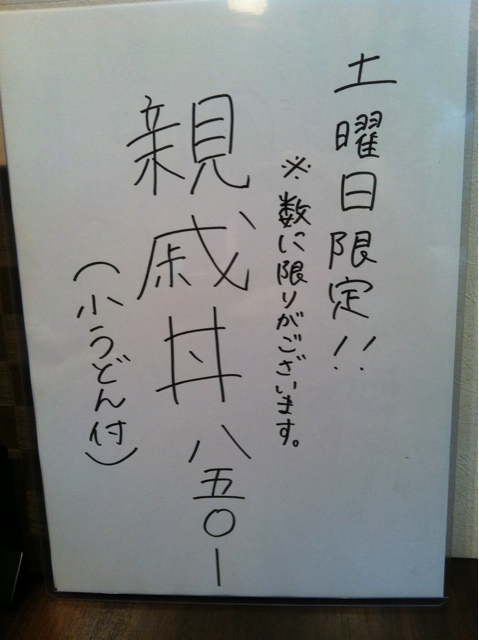 土曜日限定!!
※数に限りがございます。
親戚丼 八五〇ー
(小うどん付)